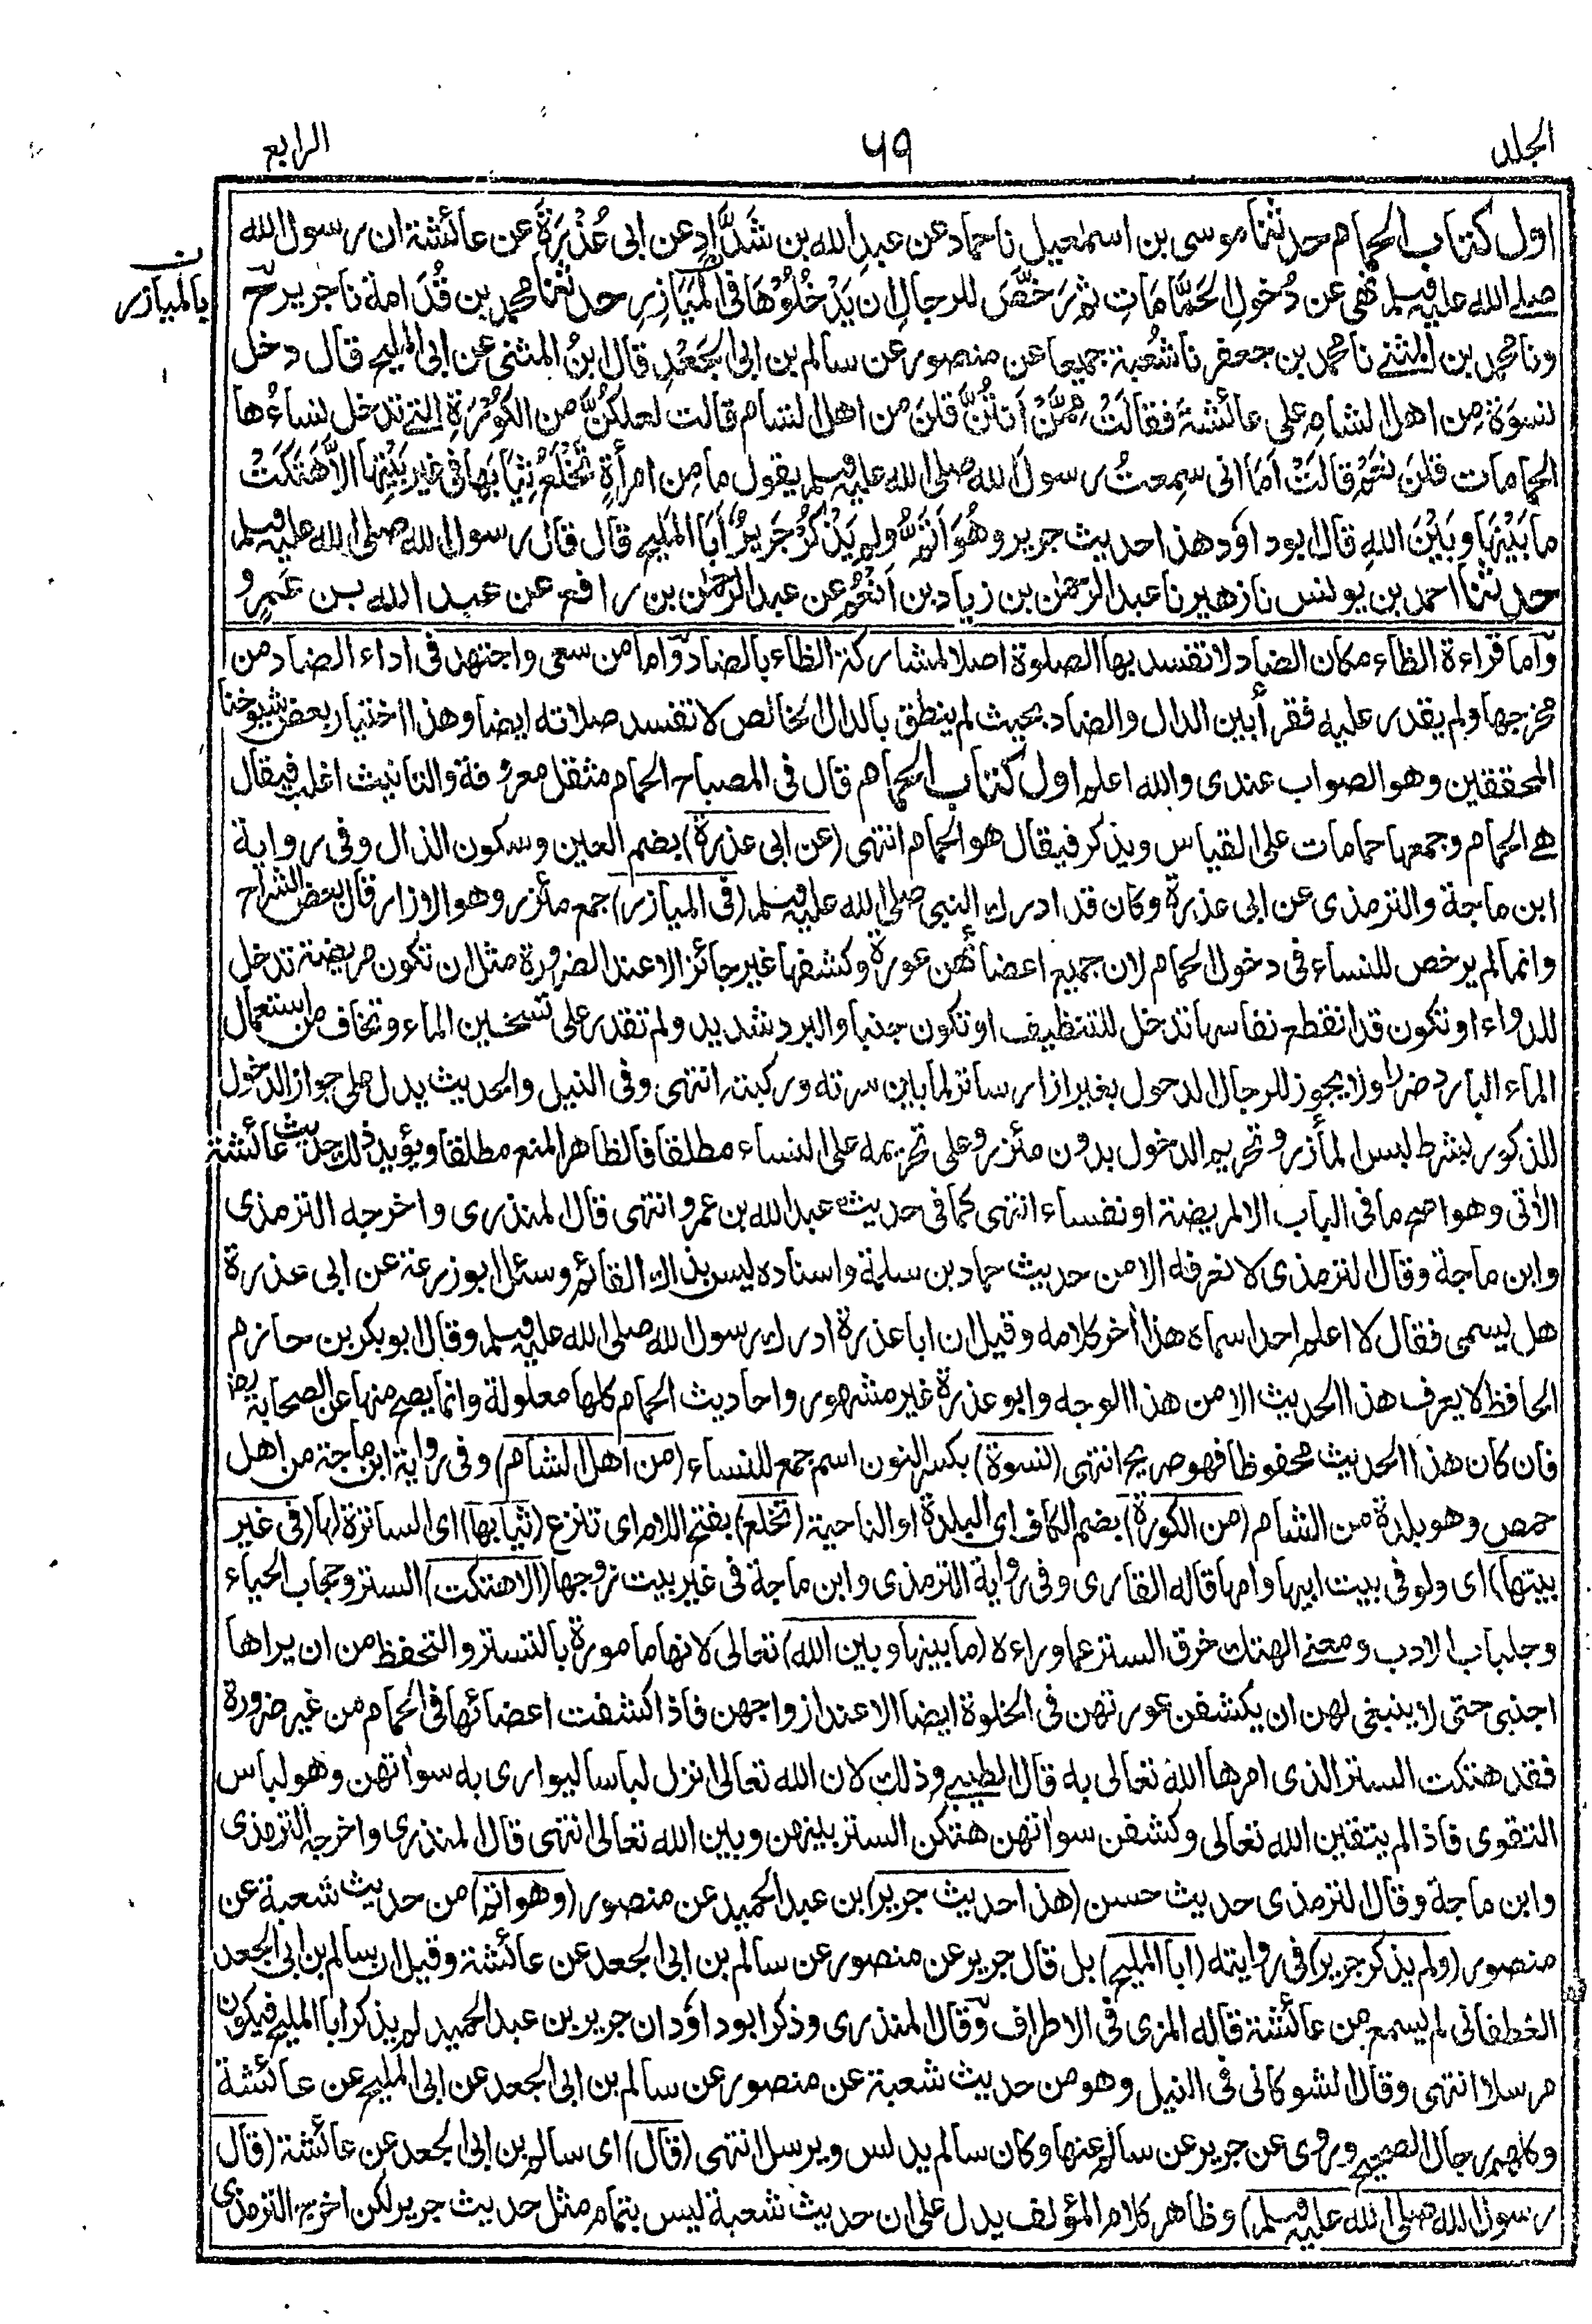 الجلد ٦٩ الرابع
اول كتاب الحمام حدثنا موسى بن اسمعيل نا حماد عن عبدِ الله بن شَدَّادٍ عن ابى عُذْرَةَ عن عائشة ان رسول الله
صلى الله عليه وسلم نهى عن دُخولِ الحَمَّامَاتِ ثم رَخَّصَ للرجالِ ان يَدْخُلُوْهَا فى المَيَازِرِ حدثنا محمد بن قُدَامة نا جرير ح
بالميازر ن
ونا محمد بن المثنى نا محمد بن جعفر نا شُعبة جميعا عن منصور عن سالم بن ابى الجَعْدِ قال ابنُ المثنى عن ابى المليح قال دخل
نسوَةٌ مِن اهل الشامِ على عائشةَ فقالَتْ مِمَّنْ اَنْتُنَّ قلنَ من اهل الشام قالت لعلكنَّ من الكُوْرَةِ التى تدخل نساءُها
الحمامات قلنَ نعم قالَتْ اَمَا انى سمِعتُ رسولَ الله صلى الله عليه وسلم يقول ما مِن امرأةٍ تَخْلَعُ ثِيَابَها فى غيرِ بَيْتِها الاَّ هَتَكَتْ
ما بَيْنَهَا وبَيْنَ اللهِ قال ابو داود هذا حديث جرير وهُوَ اَتَمُّ ولم يَذْكُرْ جَرِيرٌ اَبَا المَلِيحِ قال قال رسول الله صلى الله عليه وسلم
حدثنا احمد بن يونس نا زهير نا عبد الرحمٰن بن زياد بن اَنْعُمٍ عن عبد الرحمٰن بن رافع عن عبد الله بن عَمرٍو
وآما قراءة الظاء مكان الضاد لا تفسد بها الصلوة اصلا لمشاركة الظاء بالضاد وآما من سعى واجتهد فى اداء الضاد من
مخرجها ولم يقدر عليه فقرأ بين الدال والضاد بحيث لم ينطق بالدال الخالص لا تفسد صلاته ايضا وهذا اختيار بعض شيوخنا
المحققين وهو الصواب عندى والله اعلم اول كتاب الحمام قال فى المصباح الحمام مثقل معروفة والتانيث اغلب فيقال
هى الحمام وجمعها حمامات على القياس ويذكر فيقال هو الحمام انتهى (عن ابى عذرة) بضم العين وسكون الذال وفى رواية
ابن ماجة والترمذى عن ابى عذرة وكان قد ادرك النبى صلى الله عليه وسلم (فى الميازر) جمع مئزر وهو الازار قال بعض الشراح
وانما لم يرخص للنساء فى دخول الحمام لان جميع اعضائهن عورة وكشفها غير جائز الا عند الضرورة مثل ان تكون مريضة تدخل
للدواء او تكون قد انقطع نفاسها تدخل للتنظيف او تكون جنبا والبرد شديد ولم تقدر على تسخين الماء وتخاف من استعمال
الماء البارد ضررا ولا يجوز للرجال الدخول بغير ازار ساتر لما بين سرته وركبته انتهى وفى النيل والحديث يدل على جواز الدخول
للذكور بشرط لبس المأزر وتحريم الدخول بدون مئزر وعلى تحريمه على النساء مطلقا فالظاهر المنع مطلقا ويؤيد ذلك حديث عائشة
الآتى وهو اصح ما فى الباب الا لمريضة او نفساء انتهى كما فى حديث عبد الله بن عمرو انتهى قال المنذرى واخرجه الترمذى
وابن ماجة وقال الترمذى لا نعرفه الا من حديث حماد بن سلمة واسناده ليس بذاك القائم وسئل ابو زرعة عن ابى عذرة
هل يسمى فقال لا اعلم احدا سماه هذا آخر كلامه وقيل ان ابا عذرة ادرك رسول الله صلى الله عليه وسلم وقال ابو بكر بن حازم
الحافظ لا يعرف هذا الحديث الا من هذا الوجه وابو عذرة غير مشهور واحاديث الحمام كلها معلولة وانما يصح منها عن الصحابة رض
فان كان هذا الحديث محفوظا فهو صريح انتهى (نسوة) بكسر النون اسم جمع للنساء (من اهل الشام) وفى رواية ابن ماجة من اهل
حمص وهو بلدة من الشام (من الكورة) بضم الكاف اى البلدة او الناحية (تخلع) بفتح اللام اى تنزع (ثيابها) اى الساترة لها (فى غير
بيتها) اى ولو فى بيت ابيها وامها قاله القارى وفى رواية الترمذى وابن ماجة فى غير بيت زوجها (الا هتكت) الستر وحجاب الحياء
وجلباب الادب ومعنى الهتك خرق الستر عما وراءه (ما بينها وبين الله) تعالى لانها مامورة بالتستر والتحفظ من ان يراها
اجنبى حتى لا ينبغى لهن ان يكشفن عورتهن فى الخلوة ايضا الا عند ازواجهن فاذا كشفت اعضائها فى الحمام من غير ضرورة
فقد هتكت الستر الذى امرها الله تعالى به قال الطيبى وذلك لان الله تعالى انزل لباسا ليوارى به سواتهن وهو لباس
التقوى فاذا لم يتقين الله تعالى وكشفن سواتهن هتكن الستر بينهن وبين الله تعالى انتهى قال المنذرى واخرجه الترمذى
وابن ماجة وقال الترمذى حديث حسن (هذا حديث جرير) ابن عبد الحميد عن منصور (وهو اتم) من حديث شعبة عن
منصور (ولم يذكر جرير) فى روايته (ابا المليح) بل قال جرير عن منصور عن سالم بن ابى الجعد عن عائشة وقيل ان سالم بن ابى الجعد
الغطفانى لم يسمع من عائشة قاله المزى فى الاطراف وقآل المنذرى وذكر ابو داود ان جرير بن عبد الحميد لم يذكر ابا المليح فيكون
مرسلا انتهى وقال الشوكانى فى النيل وهو من حديث شعبة عن منصور عن سالم بن ابى الجعد عن ابى المليح عن عائشة
وكلهم رجال الصحيح وروى عن جرير عن سالم عنها وكان سالم يدلس ويرسل انتهى (قال) اى سالم بن ابى الجعد عن عائشة (قال
رسول الله صلى الله عليه وسلم) وظاهر كلام المؤلف يدل على ان حديث شعبة ليس بتمام مثل حديث جرير لكن اخرجه الترمذى